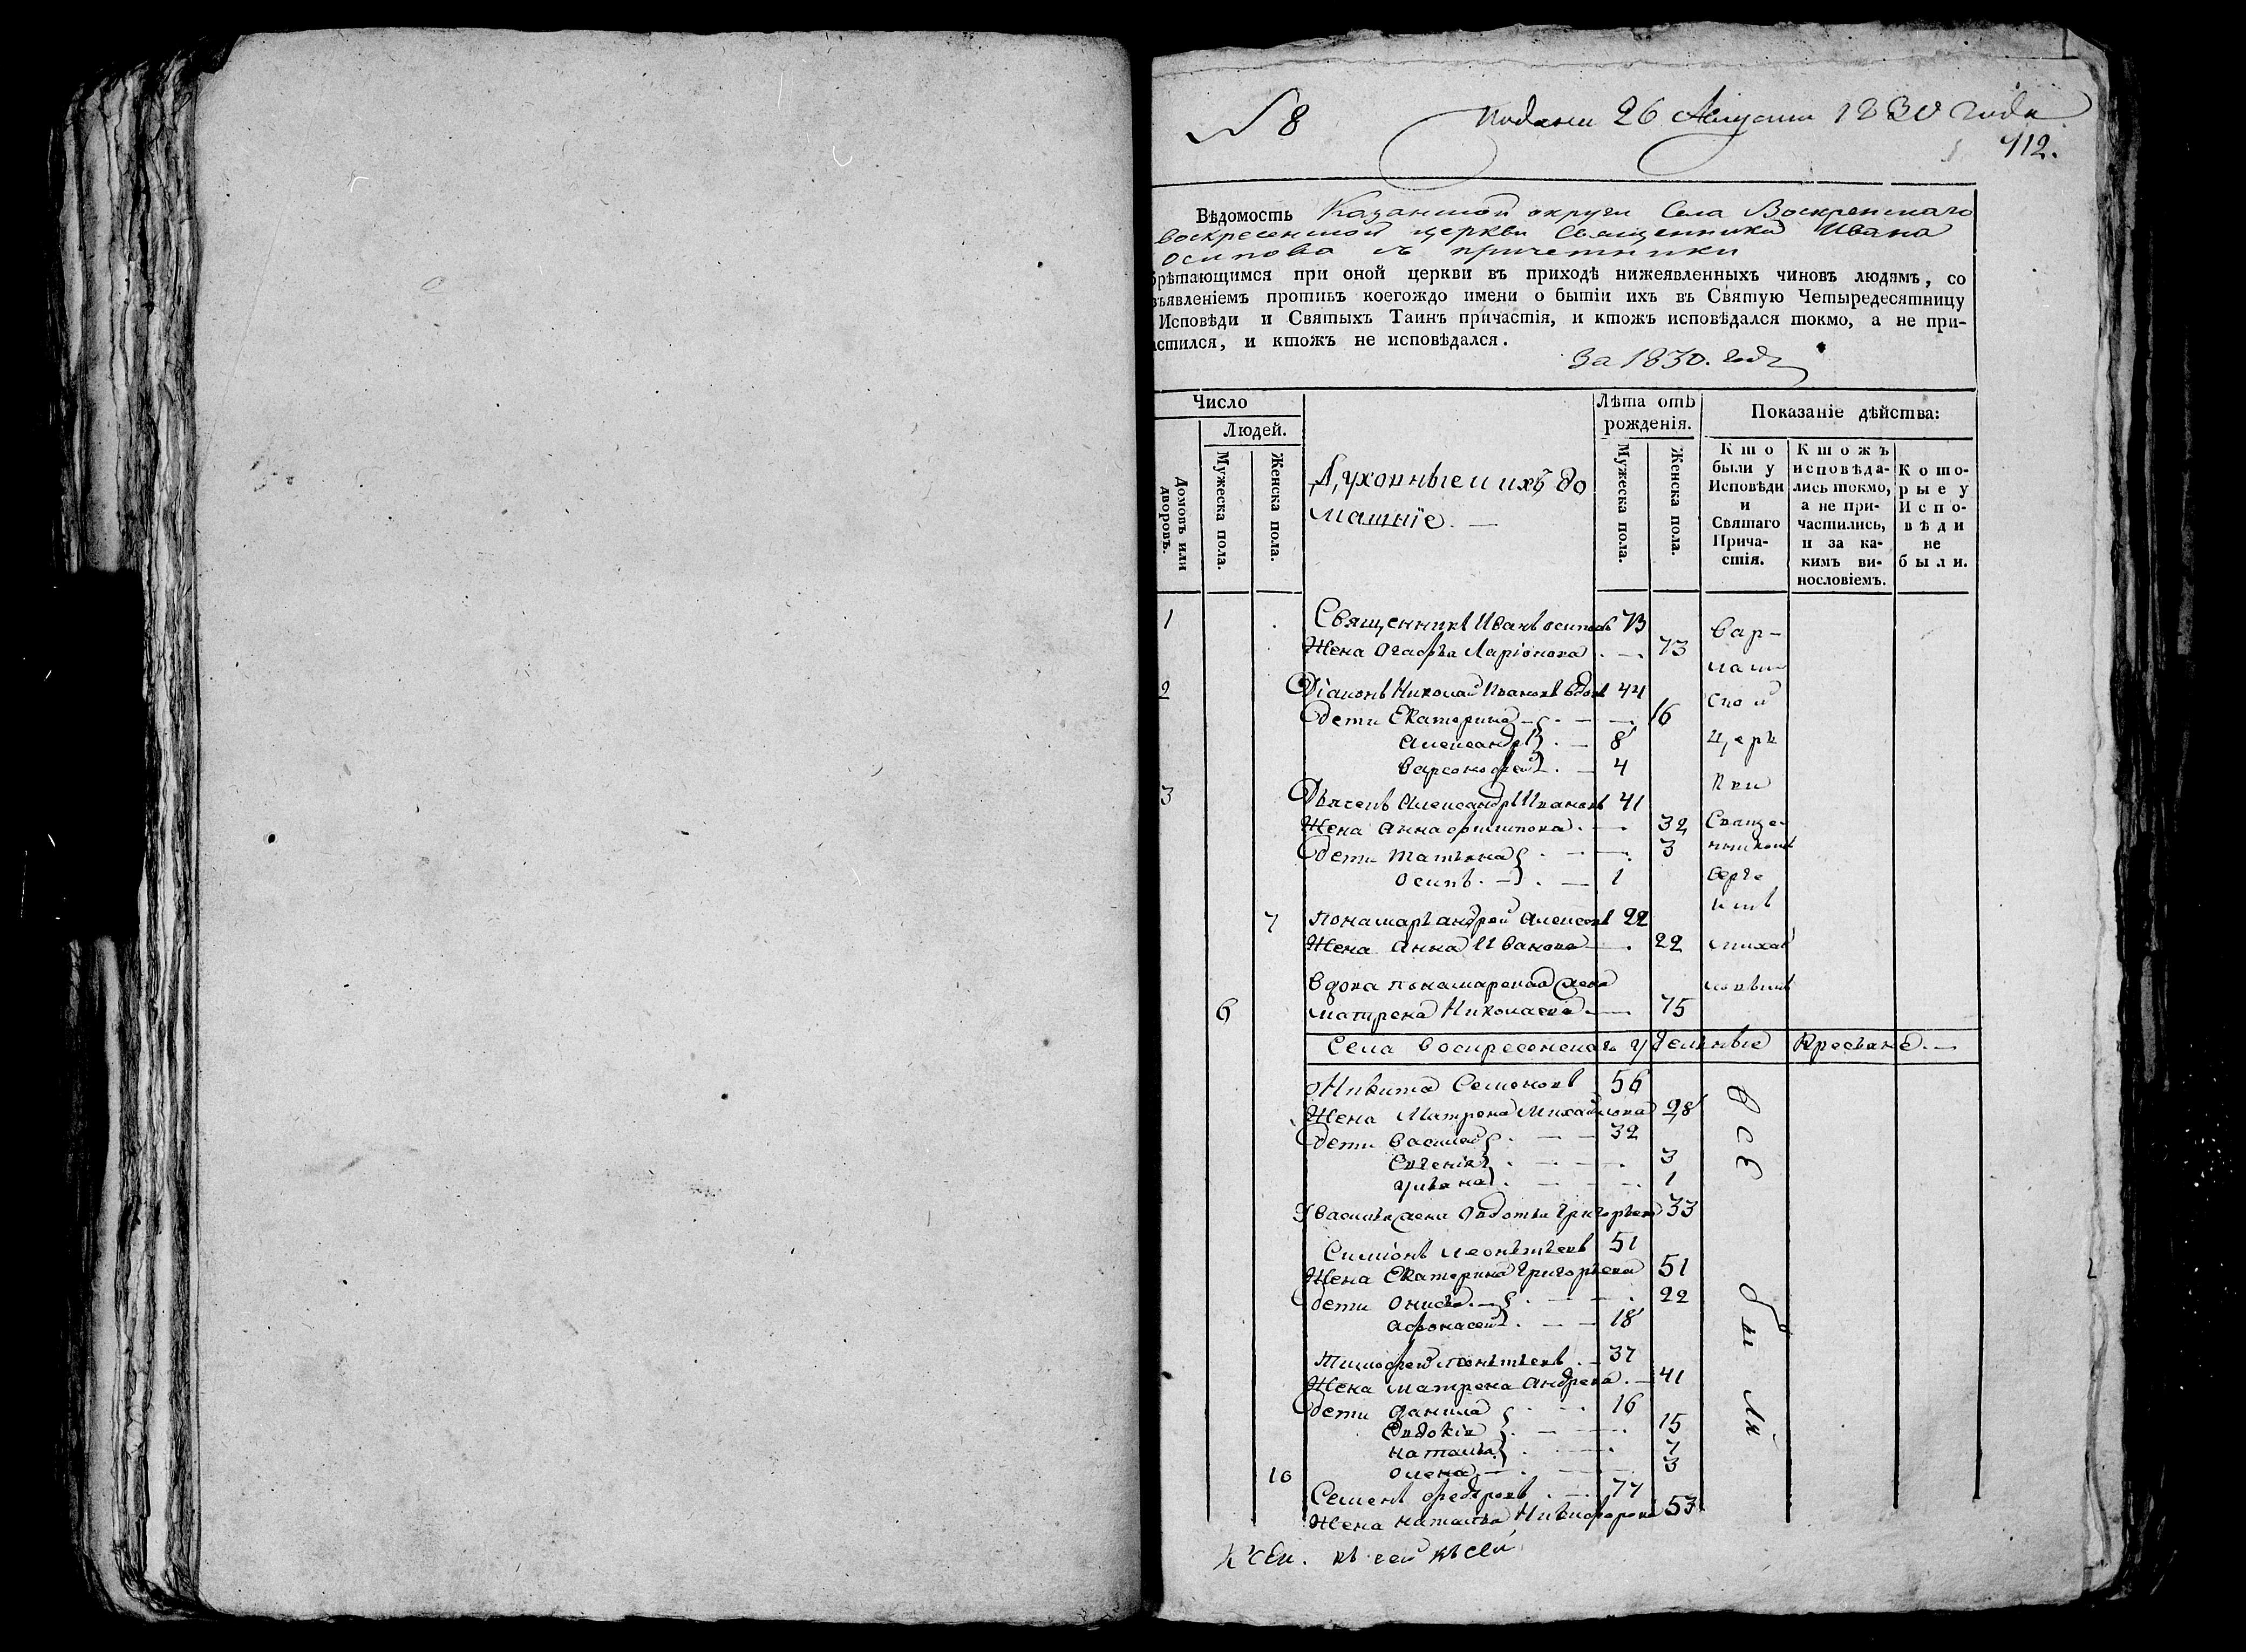 № 8 Подани 26 Августа 1830 года
412.
Вѣдомость Казанской округи Села Воскресенскаго
воскресенской церкви Священника Ивана
осипова съ причетники
брѣтающимся при оной церкви въ приходѣ нижеявленныхъ чиновъ людямъ, со
зъявленіемъ противъ коегождо имени о бытіи ихъ въ Святую Четыредесятницу
Исповѣди и Святыхъ Таинъ причастія, и ктожъ исповѣдался токмо, а не при-
астился, и ктожъ не исповѣдался.
За 1830. годъ
Число
Людей.
Домовъ или дворовъ.
Мужеска пола.
Женска пола.
Духовные и ихъ до
машніе. —
Лѣта отъ
рожденія.
Мужеска пола.
Женска пола.
Показаніе дѣйства:
Кто
были у
Исповѣди
и
Святаго
Прича-
стія.
Ктожъ
исповѣда-
лись токмо,
а не при-
частились,
и за ка-
кимъ ви-
нословіемъ.
Кото-
рые у
Испо-
вѣди
не
были.
1 Священникъ Иванъ осиповъ 73
Жена Агафья Ларіонова 73
2 Діаконъ Николай Ивановъ вдовъ 44
Дети Екатерина 16
Александръ 8
Варсонофей 4
3 Дьячекъ Александръ Ивановъ 41
Жена Анна филипова 32
Дети татьяна 3
Осипъ 1
7 Пономарь андрей Алексеевъ 22
Жена Анна Иванова 22
вдова пономарская жена
6 матрена Николаева 75
Вар-
лам
ской
Церк
кви
Священ-
никомъ
Серге
емъ
Михай
ловымъ
Села воскресенскаго удельные Кресьяне. —
Никита Семеновъ 56
Жена Матрена Михайлова 28
Дети Василей 32
Евгенія 3
Ульяна 1
У Василья жена Авдотья григорьева 33
Симіонъ леонтьевъ 51
Жена Екатерина григорьева 51
Дети Онисья 22
Афонасей 18
Тимофей леонтьевъ 37
Жена матрена Андреева 41
Дети Данила 16
Евдокія 15
наталья 7
10 олена 3
Семенъ федоровъ 77
Жена наталья Никифорова 53
всѣ были